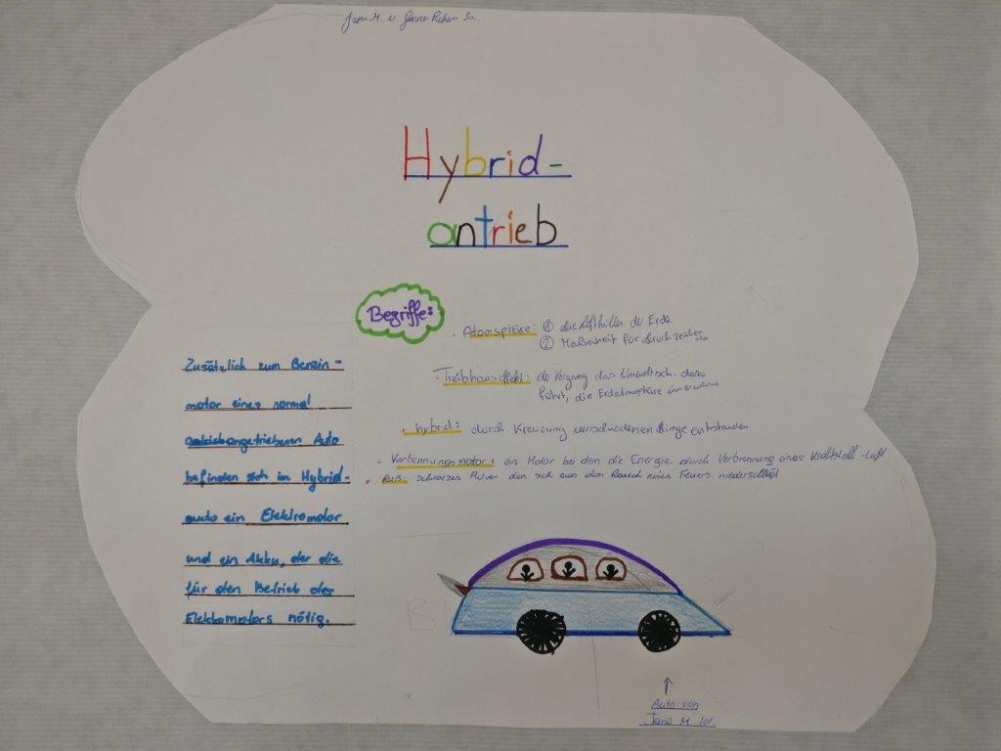 Jana M. u.
Hybrid-
antrieb
Begriffe:
Atomsphäre: ① die Lufthülle der Erde
② Maßeinheit für Druck
Treibhauseffekt: der Vorgang das Umweltsch. dazu
führt, die Erdatmosphäre
hybrid: durch Kreuzung verschiedenen Dinge entstanden
Verbennungsmotor: ein Motor bei dem die Energie durch Verbrennung eines -Luft
Ruß: schwarzes Pulver das sich aus dem Rauch eines Feuers niederschlägt
Zusätzlich zum Benzin-
motor eines normal
Auto
befinden sich im Hybrid-
auto ein Elektromotor
und ein Akku, der die
für den Betrieb des
Elektromotors nötig.
Auto von
Jana M lol.